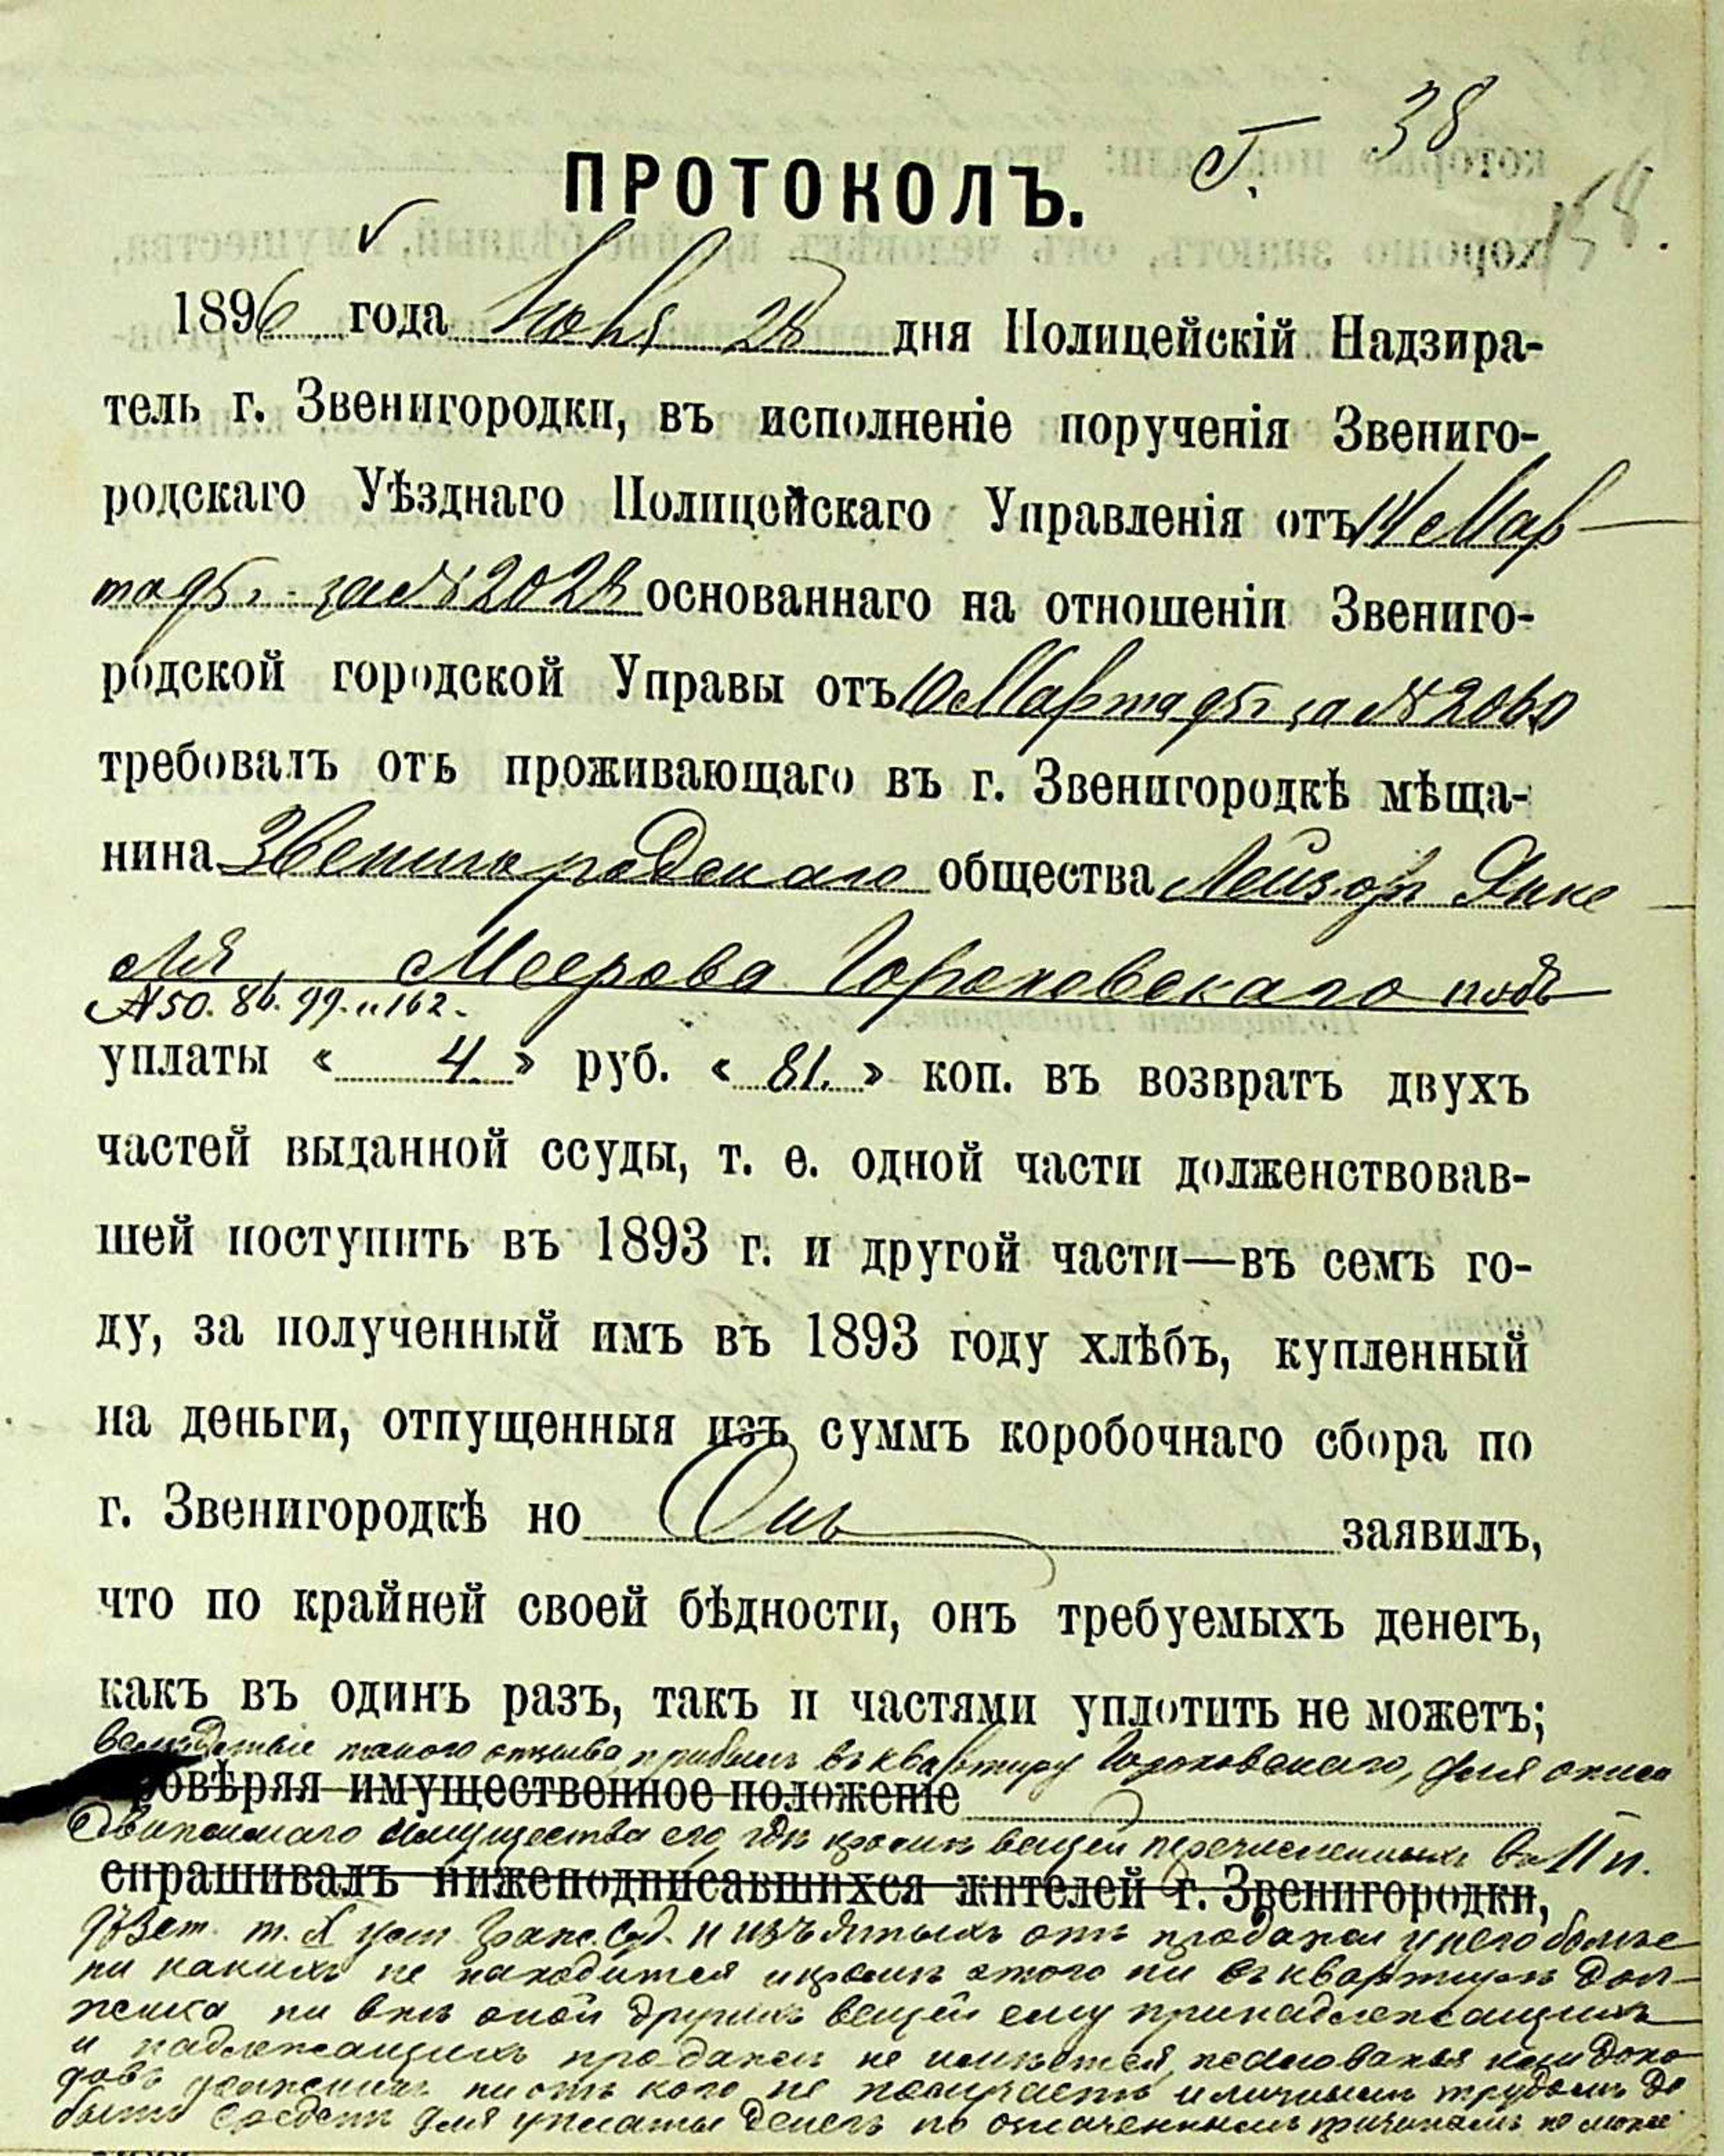 Т. 38
158.
ПРОТОКОЛЪ.
1896 года Іюня 28 дня Полицейскій Надзира-
тель г. Звенигородки, въ исполненіе порученія Звениго-
родскаго Уѣзднаго Полицейскаго Управленія отъ 14 Мар-
та 95 г. за № 2028 основаннаго на отношеніи Звениго-
родской городской Управы отъ 10 Марта 95 г за № 2060
требовалъ отъ проживающаго въ г. Звенигородкѣ мѣща-
нина Звенигородскаго общества Лейзор Янке
ля Меерова Гороховскаго подъ
№ 50. 86. 99. и 162.
уплаты « 4 » руб. « 81. » коп. въ возвратъ двухъ
частей выданной ссуды, т. е. одной части долженствовав-
шей поступить въ 1893 г. и другой части—въ семъ го-
ду, за полученный имъ въ 1893 году хлѣбъ, купленный
на деньги, отпущенныя изъ суммъ коробочнаго сбора по
г. Звенигородкѣ но Онъ заявилъ,
что по крайней своей бѣдности, онъ требуемыхъ денегъ,
какъ въ одинъ разъ, такъ и частями уплотить не можетъ;
вслѣдствіе такого отзыва, прибылъ въ квартиру Гороховскаго, для описи
овѣряя имущественное положеніе
движимаго имущества его, гдѣ кромѣ вещей перечисленныхъ въ II п.
спрашивалъ нижеподписавшихся жителей г. Звенигородки,
973 ст. т. X уст. Граж. Суд. и изъятыхъ отъ продажи у него болѣе
ни какихъ не находится и кромѣ этого ни въ квартирѣ дол-
жника ни внѣ оной другихъ вещей ему принадлежащихъ
и надлежащихъ продажѣ не имѣется, жалованья или дохо
довъ должникъ ни отъ кого не получаетъ и личнымъ трудомъ до
быть средствъ для уплаты денегъ по означеннымъ причинамъ не може